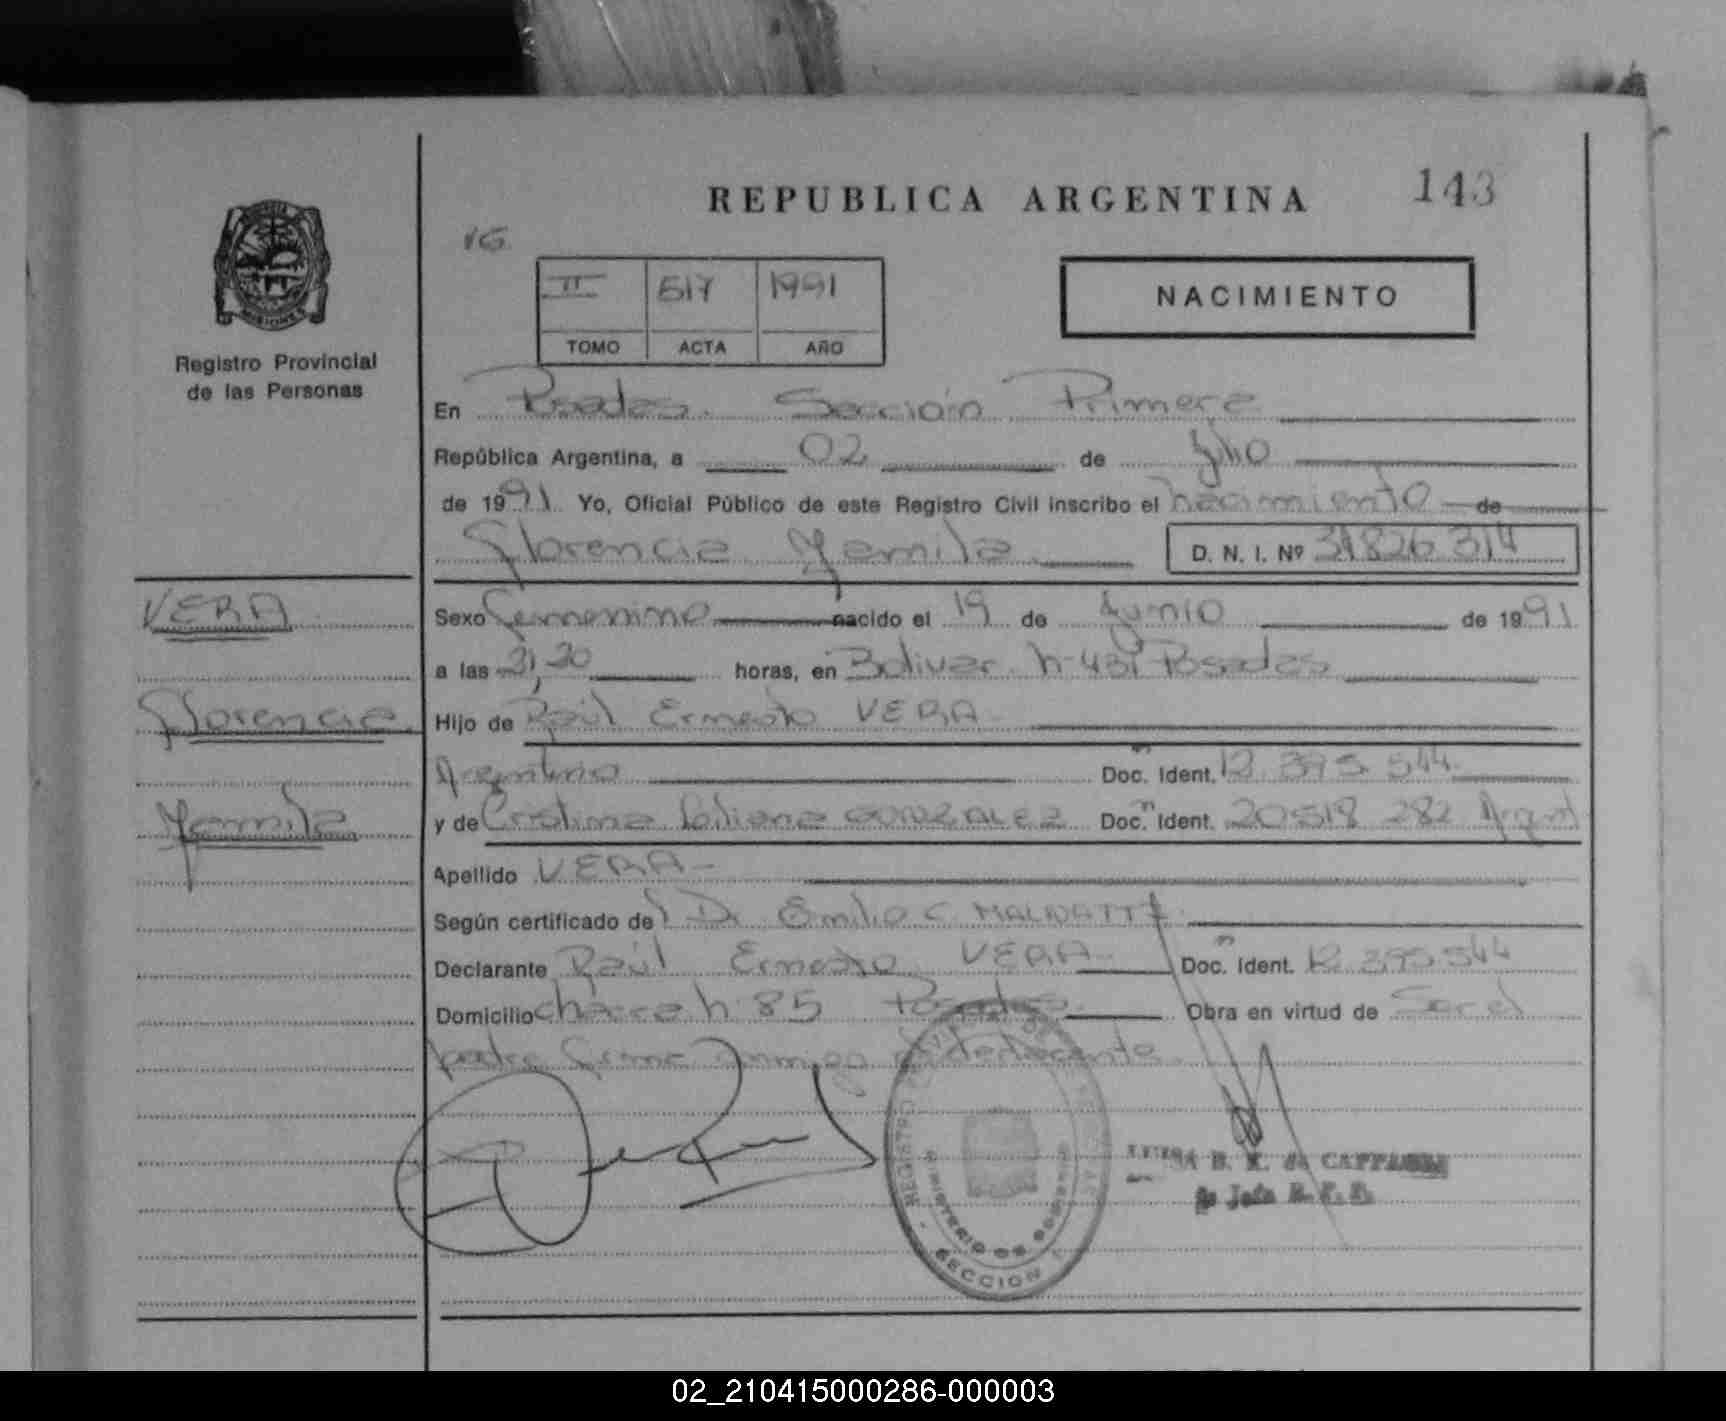 REPUBLICA ARGENTINA 143
VG
MISIONES
Registro Provincial
de las Personas
II 517 1991
TOMO ACTA AÑO
NACIMIENTO
En Posadas. Sección Primera
República Argentina, a 02 de Julio
de 1991 Yo, Oficial Público de este Registro Civil inscribo el nacimiento de
Florencia Yamila D. N. I. Nº
VERA
Florencia
Yamila
Sexo femenino nacido el 19 de Junio de 1991
a las 21,20 horas, en Bolivar n-431 Posadas
Hijo de Raúl Ernesto VERA
Argentino Doc. Ident. 12.395.544
y de Cristina Liliana GONZALEZ Doc. Ident. 20518 282 Argent
Apellido VERA-
Según certificado del Dr Emilio C.
Declarante Raúl Ernesto VERA- Doc. Ident. 12.395.544
Domicilio chacra n 85 Posadas. Obra en virtud de Ser el
padre firma conmigo el declarante.
REGISTRO
MINISTERIO DE GOBIERNO
SECCION 1
B. K. de
Jefa
02_210415000286-000003